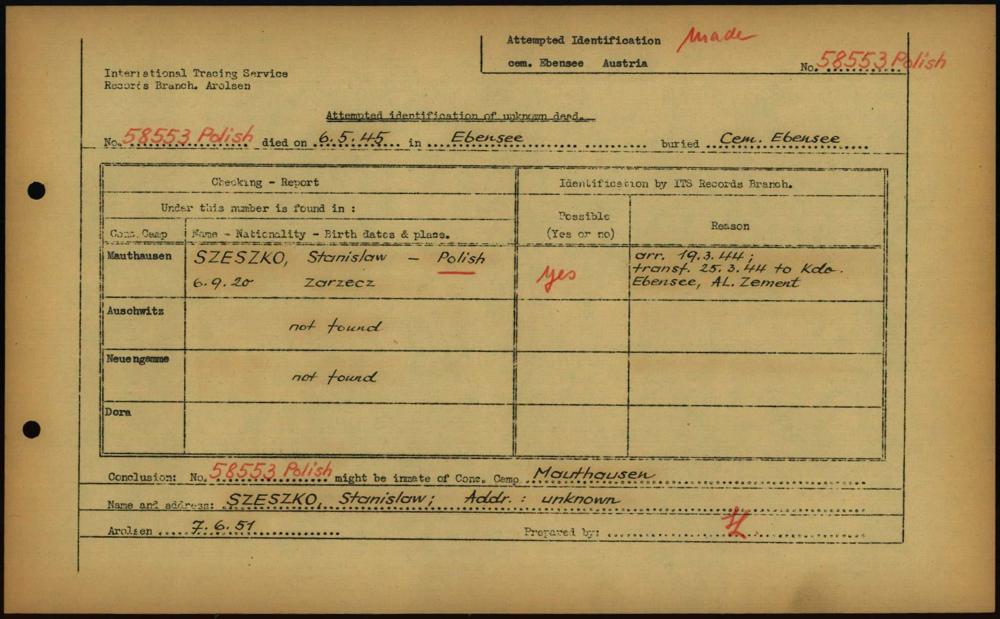 Attempted Identification made
cem. Ebensee Austria
No. 58553 Polish
International Tracing Service
Records Branch. Arolsen
Attempted identification of unknown dead.
No. 58553 Polish died on 6.5.45 in Ebensee buried Cem. Ebensee
Checking - Report
Identification by ITS Records Branch.
Under this number is found in :
Possible
(Yes or no)
Reason
Conc. Camp
Name - Nationality - Birth dates & place.
Mauthausen
SZESZKO, Stanislaw - Polish
6.9.20 Zarzecz
yes
arr. 19.3.44;
transf. 25.3.44 to Kdo.
Ebensee, AL. Zement
Auschwitz
not found
Neuengamme
not found
Dora
Conclusion: No. 58553 Polish might be inmate of Conc. Camp Mauthausen
Name and address: SZESZKO, Stanislaw; Addr.: unknown
Arolsen 7.6.51
Prepared by: